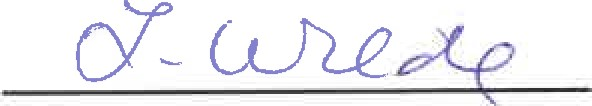 L. Wrede